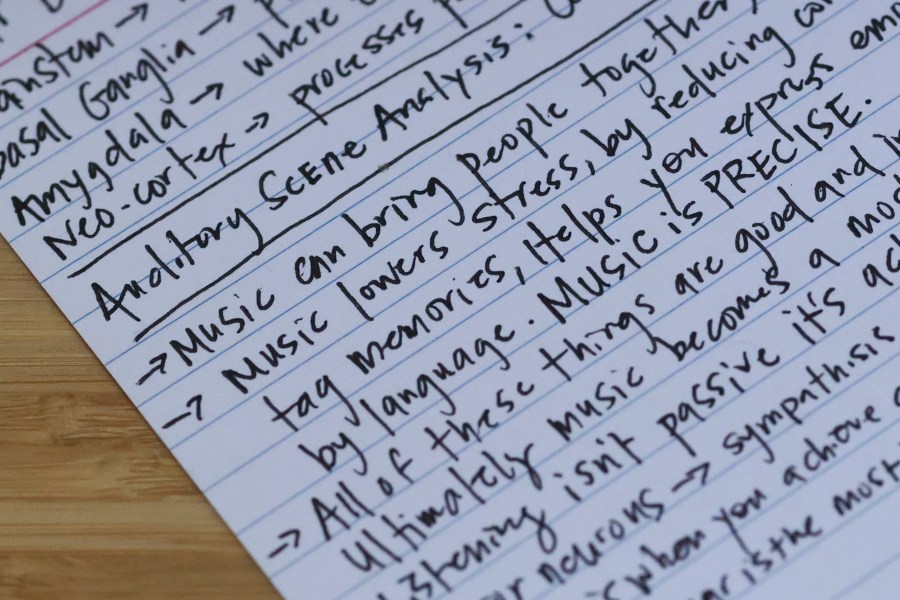 Basal Ganglia →
Amygdala → where
Neo-cortex → processes
Auditory SCENE Analysis:
→ Music can bring people together,
→ Music lowers stress, by reducing
tag memories, Helps you express
by language. Music is PRECISE.
→ All of these things are good and
Ultimately music becomes a
Listening isn't passive it's
neurons → sympathisis
when you achieve
is the most